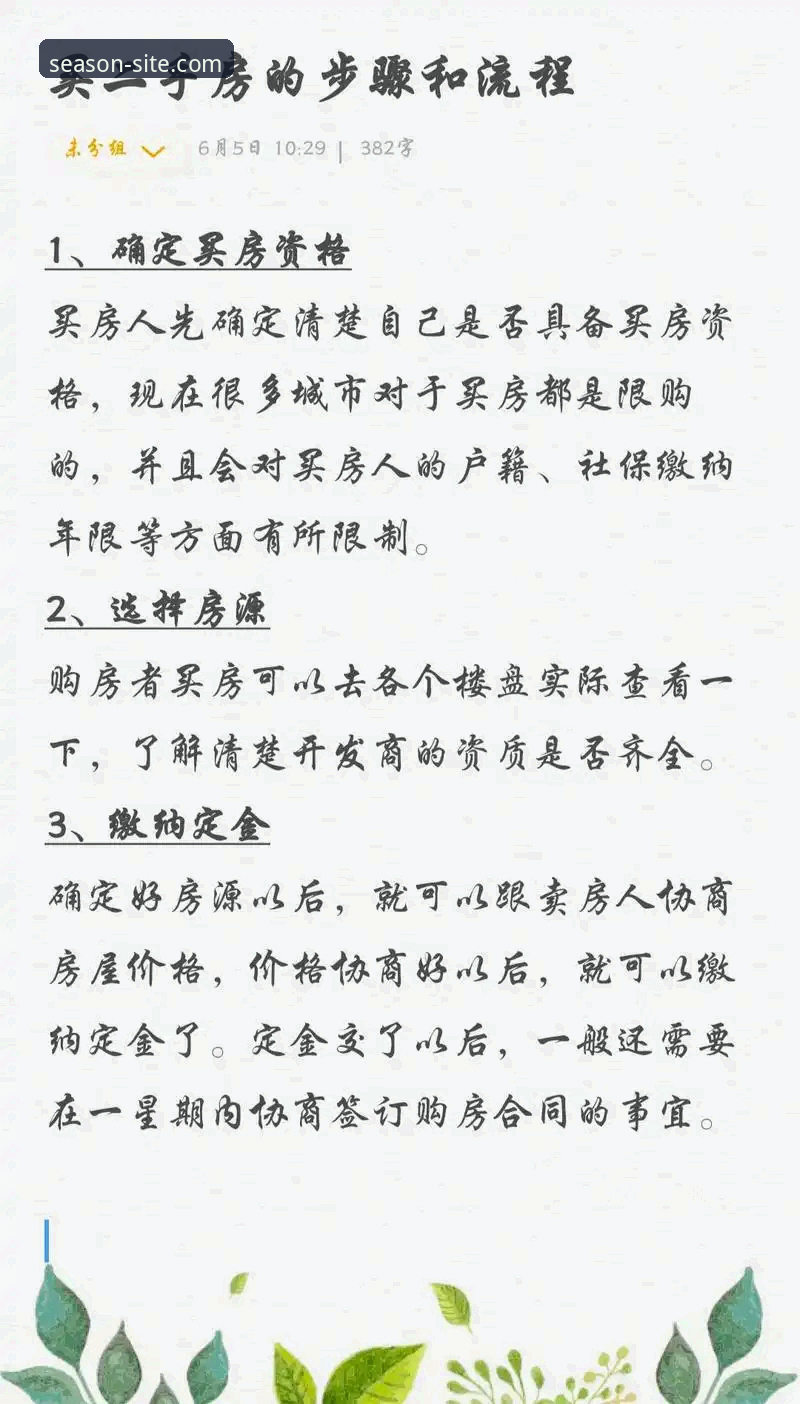 season-site.com
买二手房的步骤和流程
未分组 6月5日 10:29 | 382字
1、确定买房资格
买房人先确定清楚自己是否具备买房资
格，现在很多城市对于买房都是限购
的，并且会对买房人的户籍、社保缴纳
年限等方面有所限制。
2、选择房源
购房者买房可以去各个楼盘实际查看一
下，了解清楚开发商的资质是否齐全。
3、缴纳定金
确定好房源以后，就可以跟卖房人协商
房屋价格，价格协商好以后，就可以缴
纳定金了。定金交了以后，一般还需要
在一星期内协商签订购房合同的事宜。